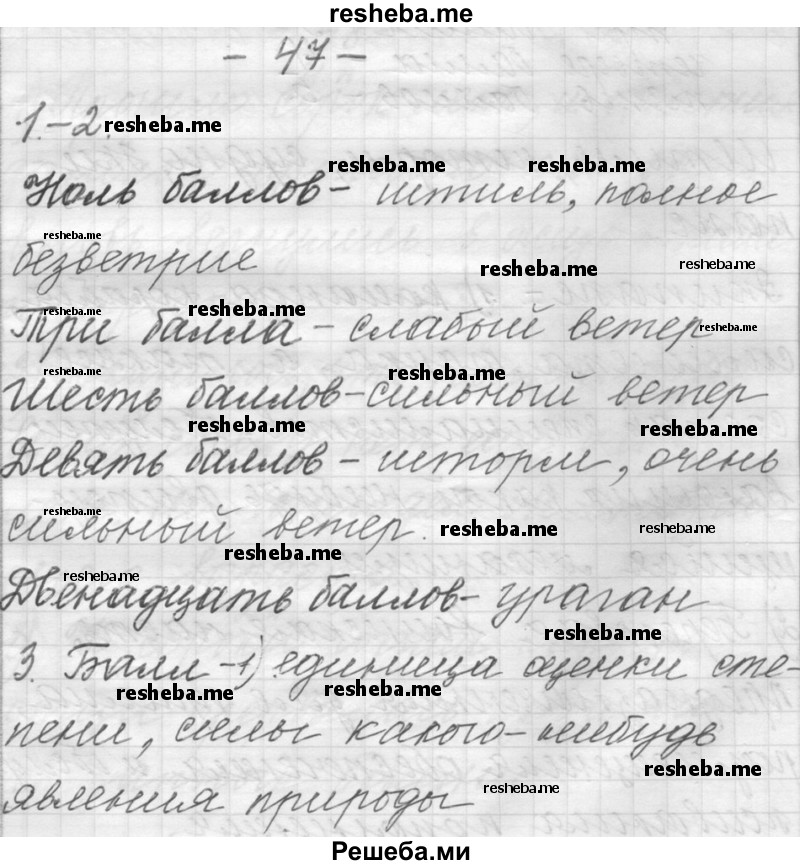 resheba.me
- 47 -
1.-2. resheba.me
resheba.me resheba.me
Ноль баллов - штиль, полное
resheba.me
безветрие
resheba.me resheba.me
resheba.me resheba.me
Три балла - слабый ветер
resheba.me
resheba.me resheba.me
Шесть баллов - сильный ветер
resheba.me resheba.me
Девять баллов - шторм, очень
resheba.me
сильный ветер. resheba.me resheba.me
resheba.me
resheba.me
Двенадцать баллов - ураган
resheba.me
3. Балл - 1) единица оценки сте-
resheba.me resheba.me
пени, силы какого-нибудь
resheba.me
явления природы resheba.me
Решеба.ми